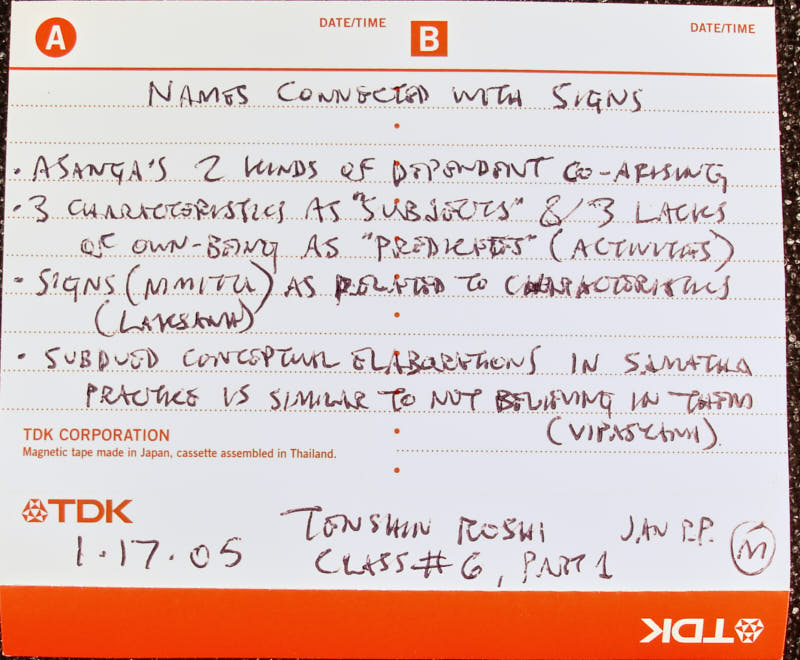 A
DATE/TIME
B
DATE/TIME
NAMES CONNECTED WITH SIGNS
• ASANGA'S 2 KINDS OF DEPENDENT CO-ARISING
• 3 CHARACTERISTICS AS "SUBJECTS" & / 3 LACKS
OF OWN-BEING AS "PREDICATES" (ACTIVITIES)
• SIGNS (NIMITTA) AS RELATED TO CHARACTERISTICS
(LAKSANA)
• SUBDUED CONCEPTUAL ELABORATIONS IN SAMATHA
PRACTICE IS SIMILAR TO NOT BELIEVING IN THEM
(VIPASYANA)
TDK CORPORATION
Magnetic tape made in Japan, cassette assembled in Thailand.
TDK
TENSHIN ROSHI JAN P.P. M
1.17.05
CLASS #6, PART 1
TDK